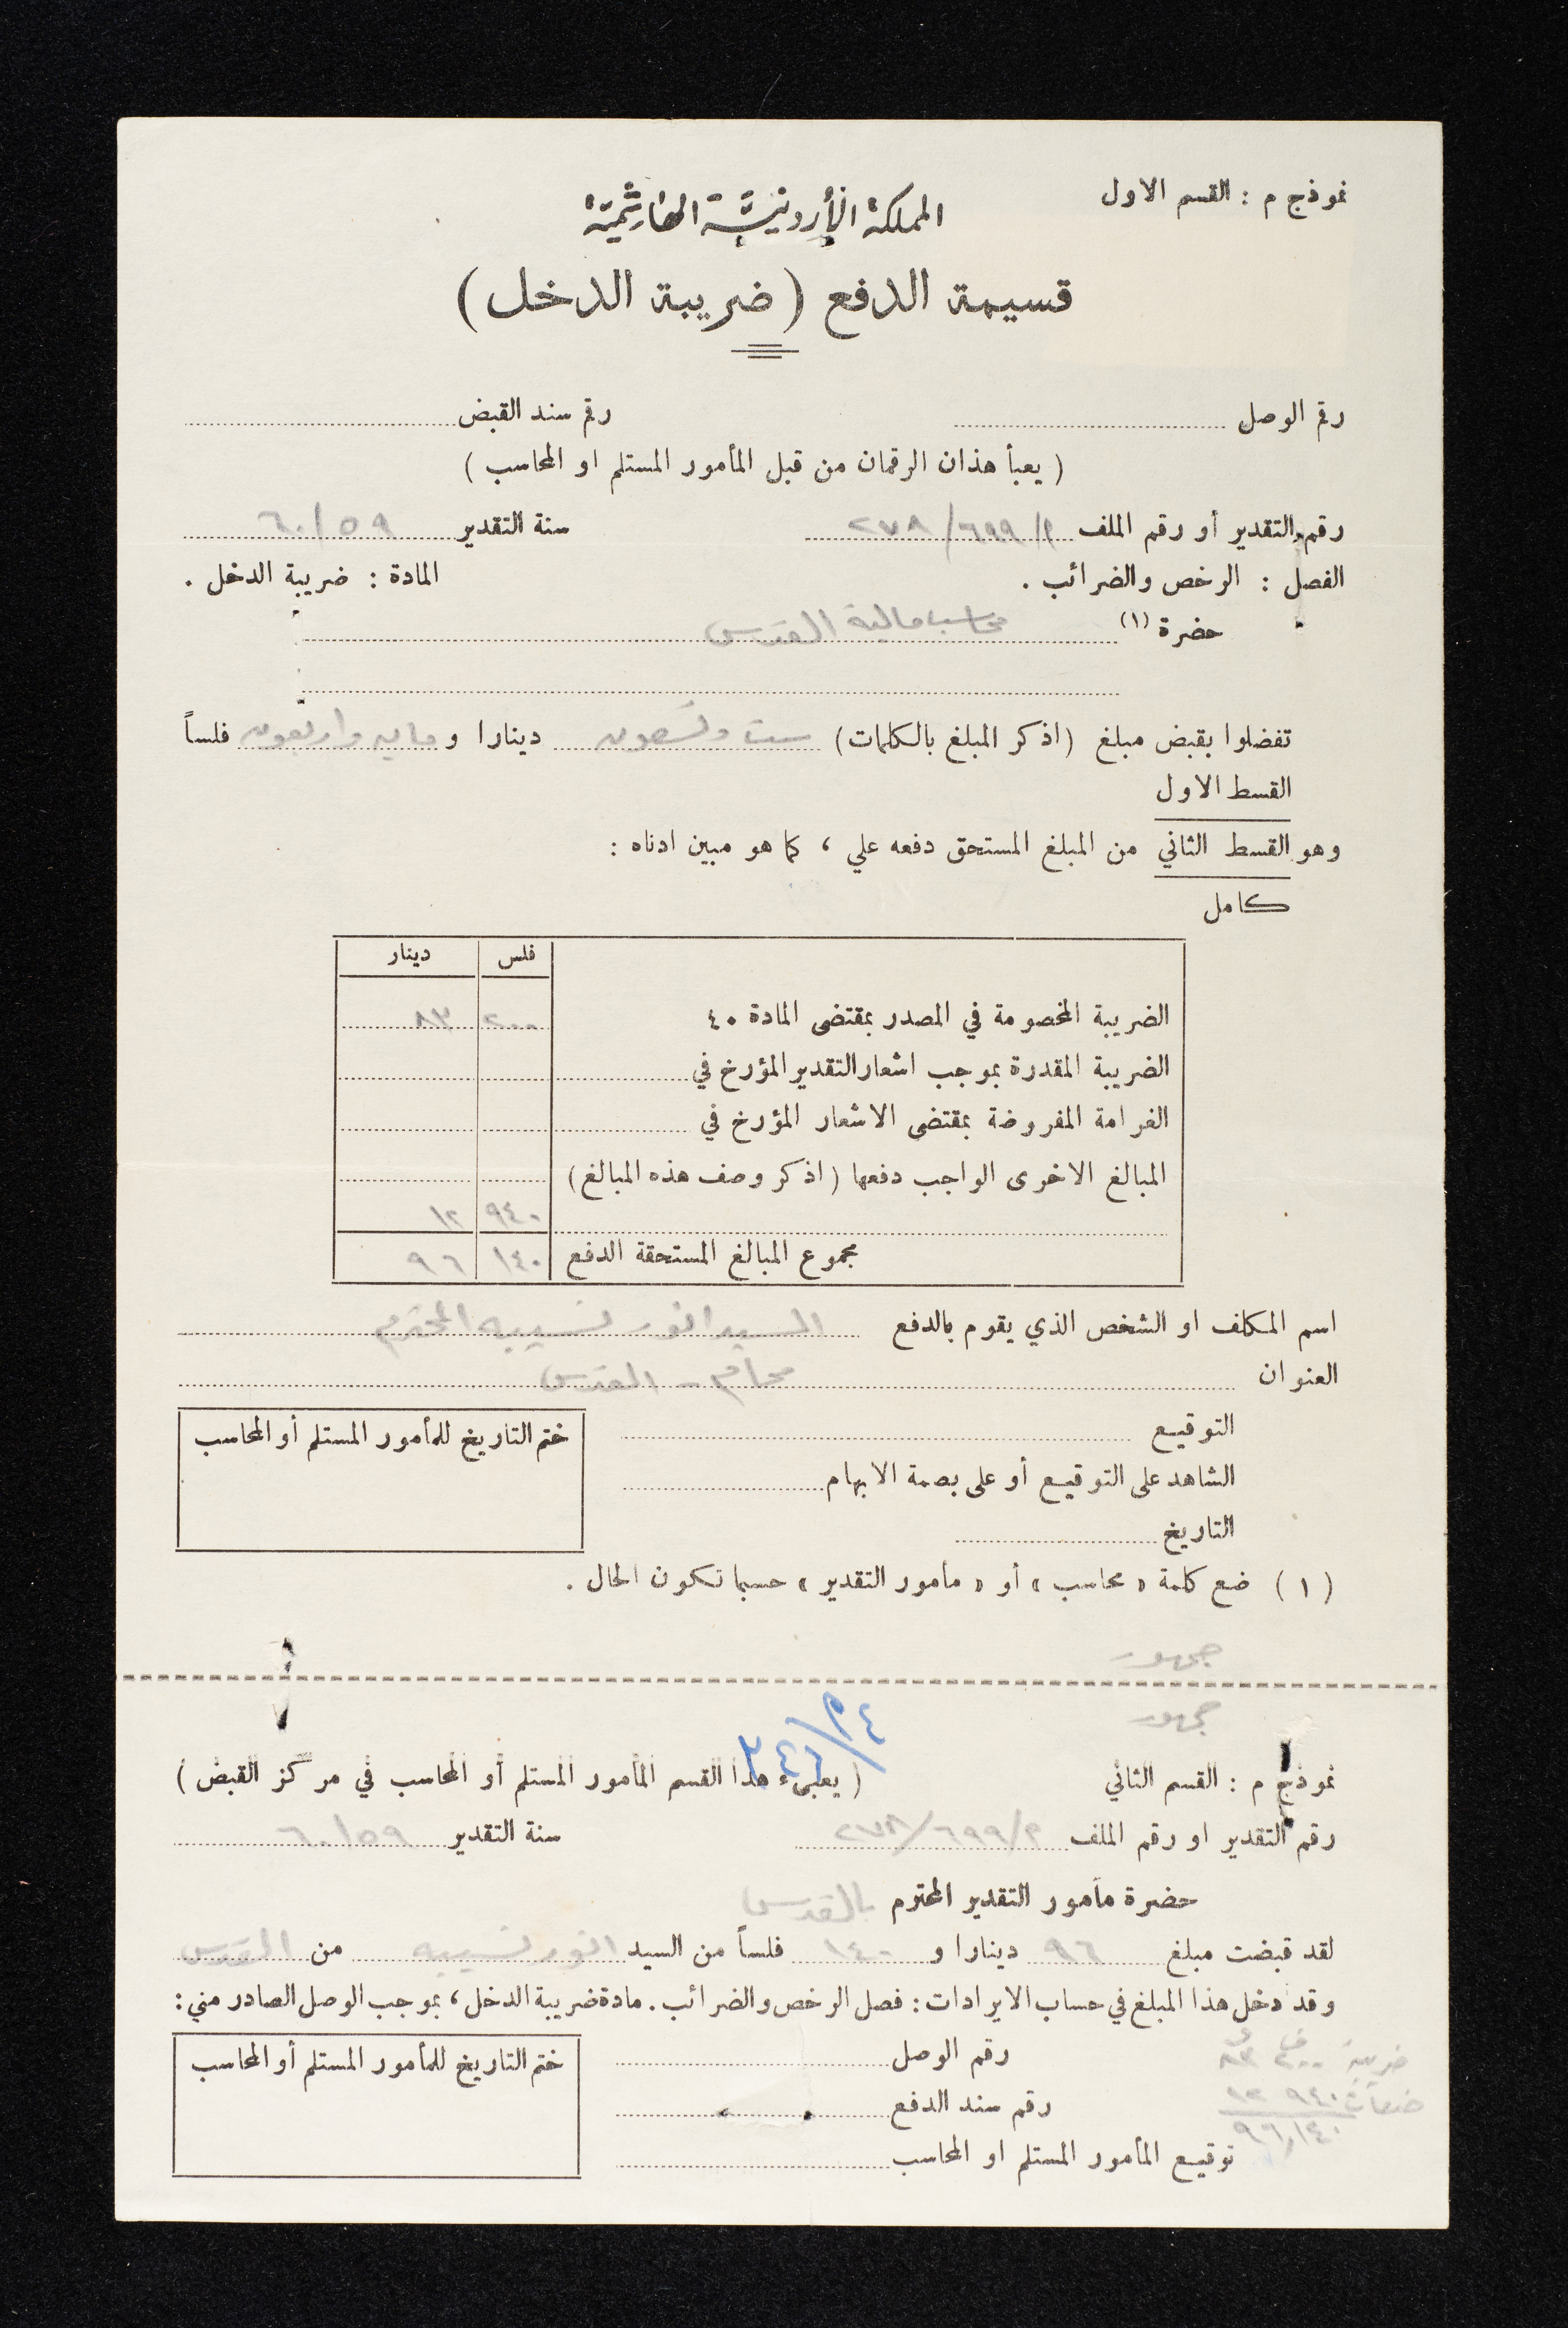 نموذج م : القسم الاول
المملكة الأردنية الهاشمية
قسيمة الدفع ( ضريبة الدخل )
رقم الوصل رقم سند القبض
( يعبأ هذان الرقمان من قبل المأمور المستلم او المحاسب )
رقم التقدير أو رقم الملف م/٦٩٩/٢٧٨ سنة التقدير ٦٠/٥٩
الفصل : الرخص والضرائب . المادة : ضريبة الدخل .
حضرة (١) محاسب مالية القدس
تفضلوا بقبض مبلغ (اذكر المبلغ بالكلمات) ست وتسعون دينارا و مايه واربعون فلساً
القسط الاول
وهو القسط الثاني من المبلغ المستحق دفعه علي ، كما هو مبين ادناه :
كامل
فلس دينار
الضريبة المخصومة في المصدر بمقتضى المادة ٤٠ ٢٠٠ ٨٣
الضريبة المقدرة بموجب اشعار التقدير المؤرخ في
الغرامة المفروضة بمقتضى الاشعار المؤرخ في
المبالغ الاخرى الواجب دفعها (اذكر وصف هذه المبالغ)
٩٤٠ ١٢
مجموع المبالغ المستحقة الدفع ١٤٠ ٩٦
اسم المكلف او الشخص الذي يقوم بالدفع السيد انور نسيبه المحترم
العنوان محام - القدس
التوقيع
الشاهد على التوقيع أو على بصمة الابهام
التاريخ
ختم التاريخ للمأمور المستلم أو المحاسب
(١) ضع كلمة « محاسب » أو « مأمور التقدير » حسبما تكون الحال .
نموذج م : القسم الثاني ( يعبىء هذا القسم المأمور المستلم أو المحاسب في مركز القبض )
رقم التقدير او رقم الملف م/٦٩٩/٢٧٨ سنة التقدير ٦٠/٥٩
حضرة مأمور التقدير المحترم بالقدس
لقد قبضت مبلغ ٩٦ دينارا و ١٤٠ فلساً من السيد انور نسيبه من القدس
وقد دخل هذا المبلغ في حساب الايرادات : فصل الرخص والضرائب . مادة ضريبة الدخل ، بموجب الوصل الصادر مني :
رقم الوصل
رقم سند الدفع
توقيع المأمور المستلم او المحاسب
ختم التاريخ للمأمور المستلم أو المحاسب
ضريبة ٢٠٠ ٨٣
٩٤٠ ١٢
٩٦،١٤٠